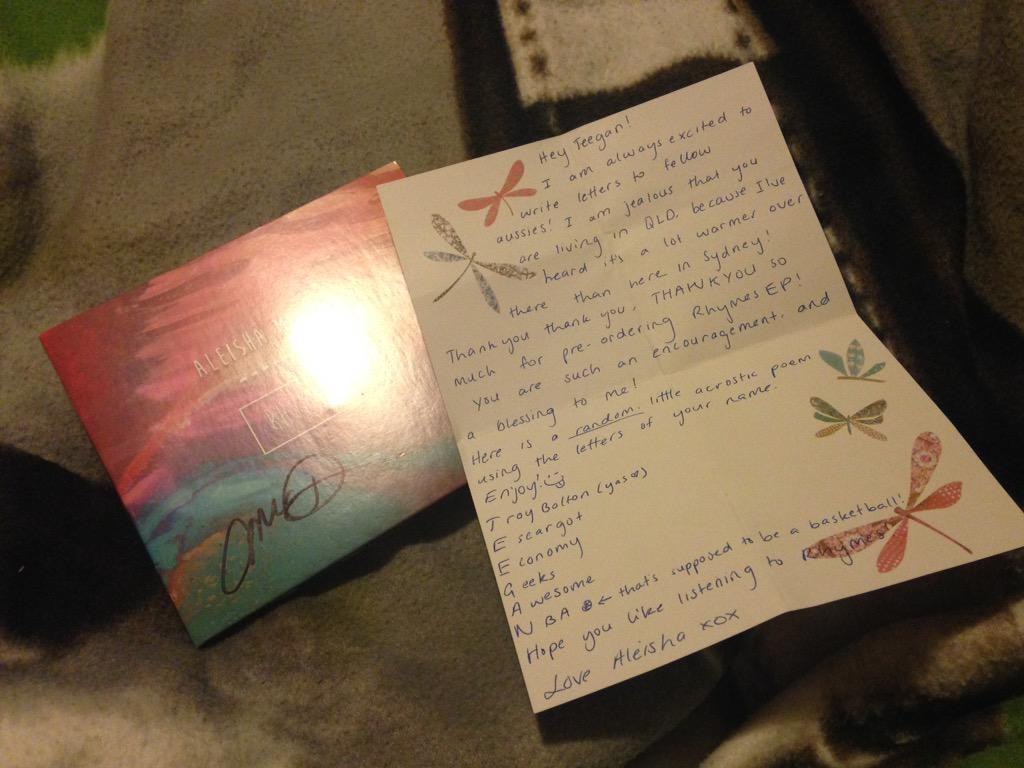 ALEISHA
Hey Teegan!
I am always excited to
write letters to fellow
aussies! I am jealous that you
are living in QLD. because I've
heard it's a lot warmer over
there than here in Sydney!
Thankyou thank you, THANKYOU so
much for pre-ordering Rhymes EP!
You are such an encouragement, and
a blessing to me!
Here is a random little acrostic poem
using the letters of your name.
Enjoy!
Troy Bolton (yas)
Escargot
Economy
Geeks
Awesome
NBA ← that's supposed to be a basketball!
Hope you like listening to Rhymes
Love Aleisha xox